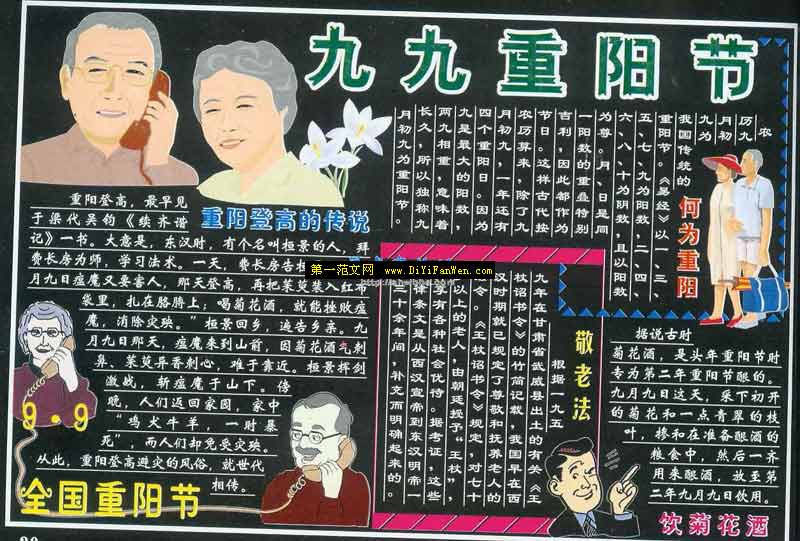 九九重阳节
农
历九
月初
九为
我国传统的
重阳节。《易经》以一、三、
五、七、九为阳数，二、四、
六、八、十为阴数，且以阳数
为尊。月、日是同
一阳数的重叠特别
吉利，因此都作为
节日。这样古代按
农历算来，除了九
月初九，一年还有
四个重阳日。因为
九是最大的阳数，
两九相重，意味着
长久，所以独称九
月初九为重阳节。
何为重阳
重阳登高的传说
重阳登高，最早见
于梁代吴钧《续齐谐
记》一书。大意是，东汉时，有个名叫桓景的人，拜
费长房为师，学习法术。一天，费长房告
月九日瘟魔又要害人，那天登高，再把茱萸装入红布
袋里，扎在胳膊上；喝菊花酒，就能挫败瘟
魔，消除灾殃。”桓景回乡，遍告乡亲。九
月九日那天，瘟魔来到山前，因菊花酒气刺
鼻、茱萸异香刺心，难于靠近。桓景挥剑
激战，斩瘟魔于山下。傍
晚，人们返回家园，家中
“鸡犬牛羊，一时暴
死”，而人们却免受灾殃。
从此，重阳登高避灾的风俗，就世代
相传。
第一范文网 www.DiYiFanWen.com
9·9
全国重阳节
敬老法
根据一九五
九年在甘肃省武威县出土的有关《王
杖诏书令》的竹简记载，我国早在西
汉时期就已规定了尊敬和抚养老人的
令。《王杖诏书令》规定，对七十
以上的老人，由朝廷授予“王杖”，
有各种社会优待。据考证，这些
律条文是从西汉宣帝到东汉明帝一
二十余年间，补充而明确起来的。
据说古时
菊花酒，是头年重阳节时
专为第二年重阳节酿的。
九月九日这天，采下初开
的菊花和一点青翠的枝
叶，掺和在准备酿酒的
粮食中，然后一齐
用来酿酒，放至第
二年九月九日饮用。
饮菊花酒